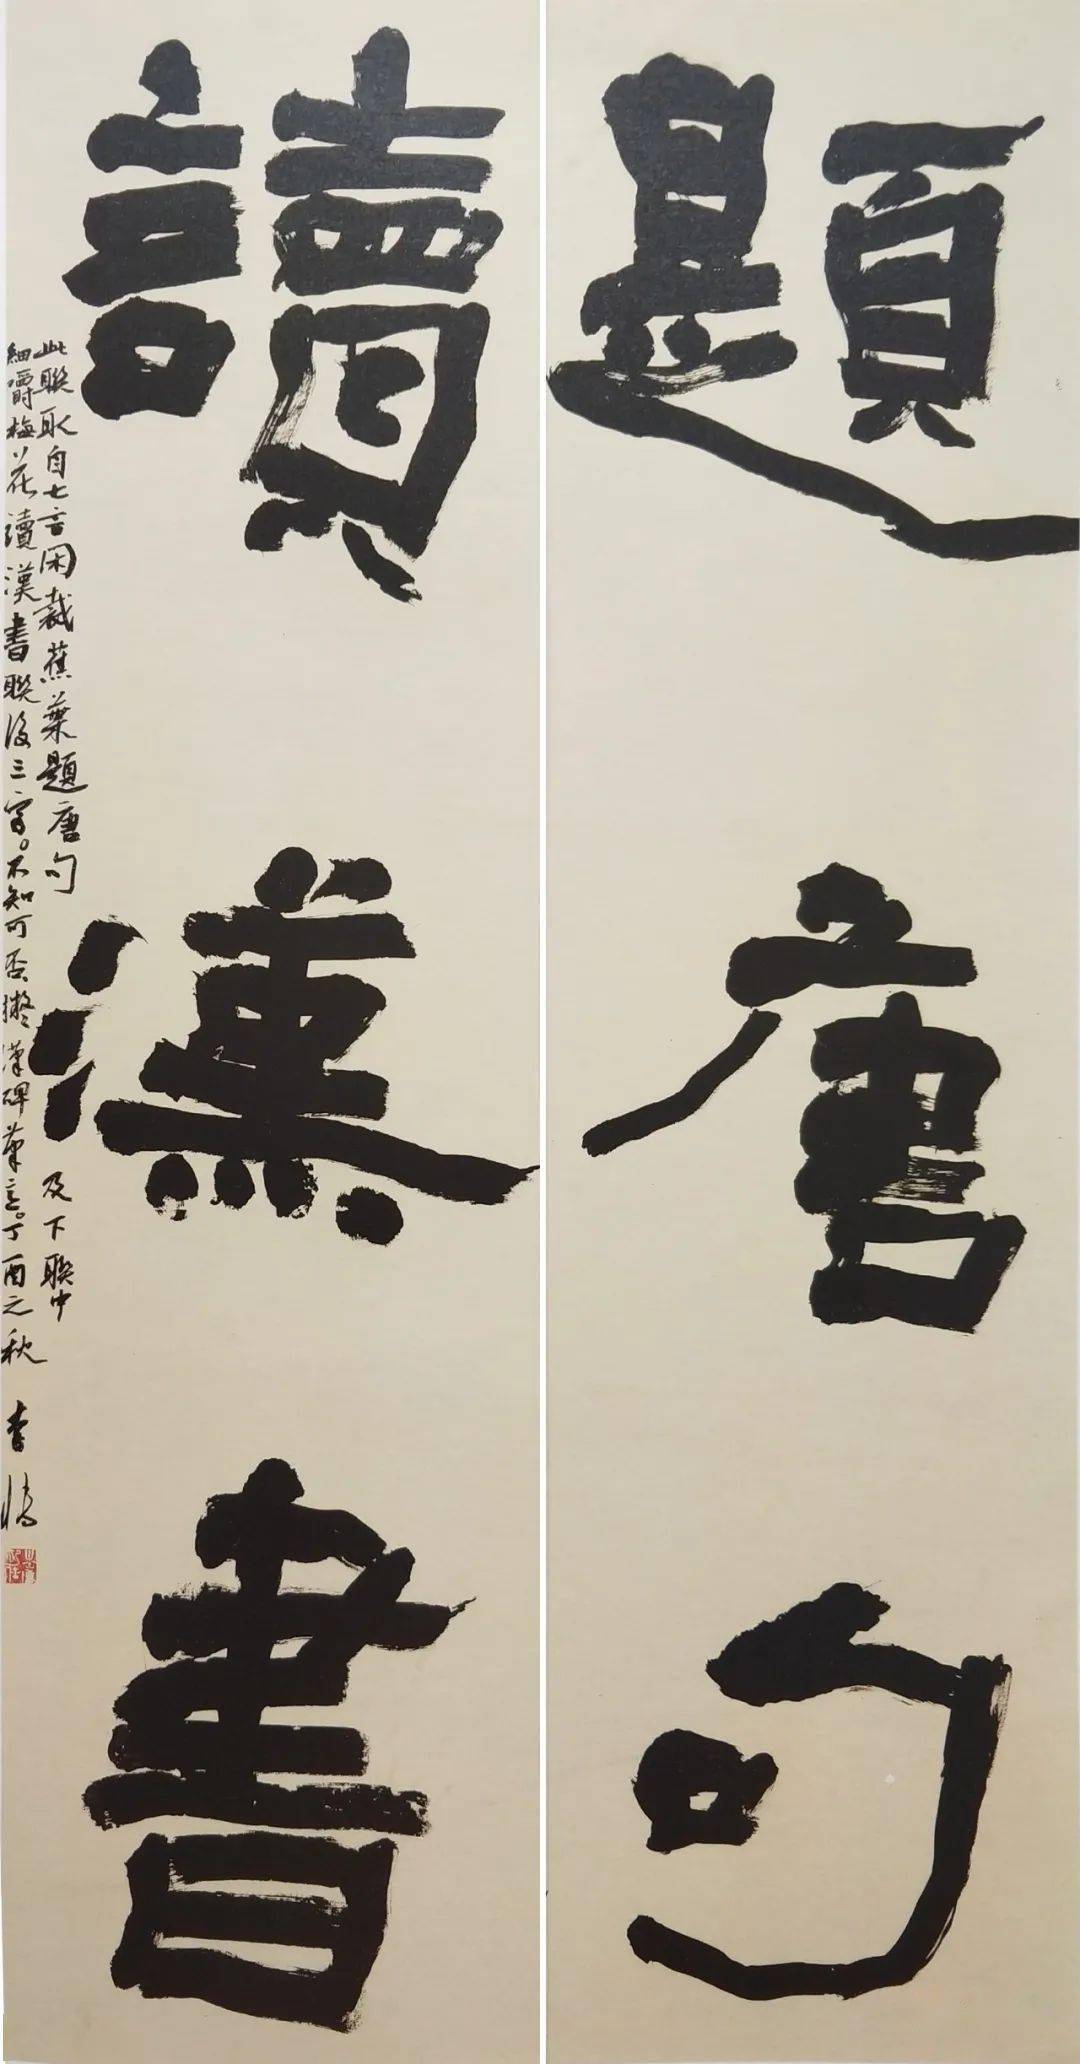 題唐句
讀漢書
此聯取自七言閑裁蕉葉題唐句及下聯中
細嚼梅花讀漢書聯後三字。不知可否擬漢碑筆意。丁酉之秋